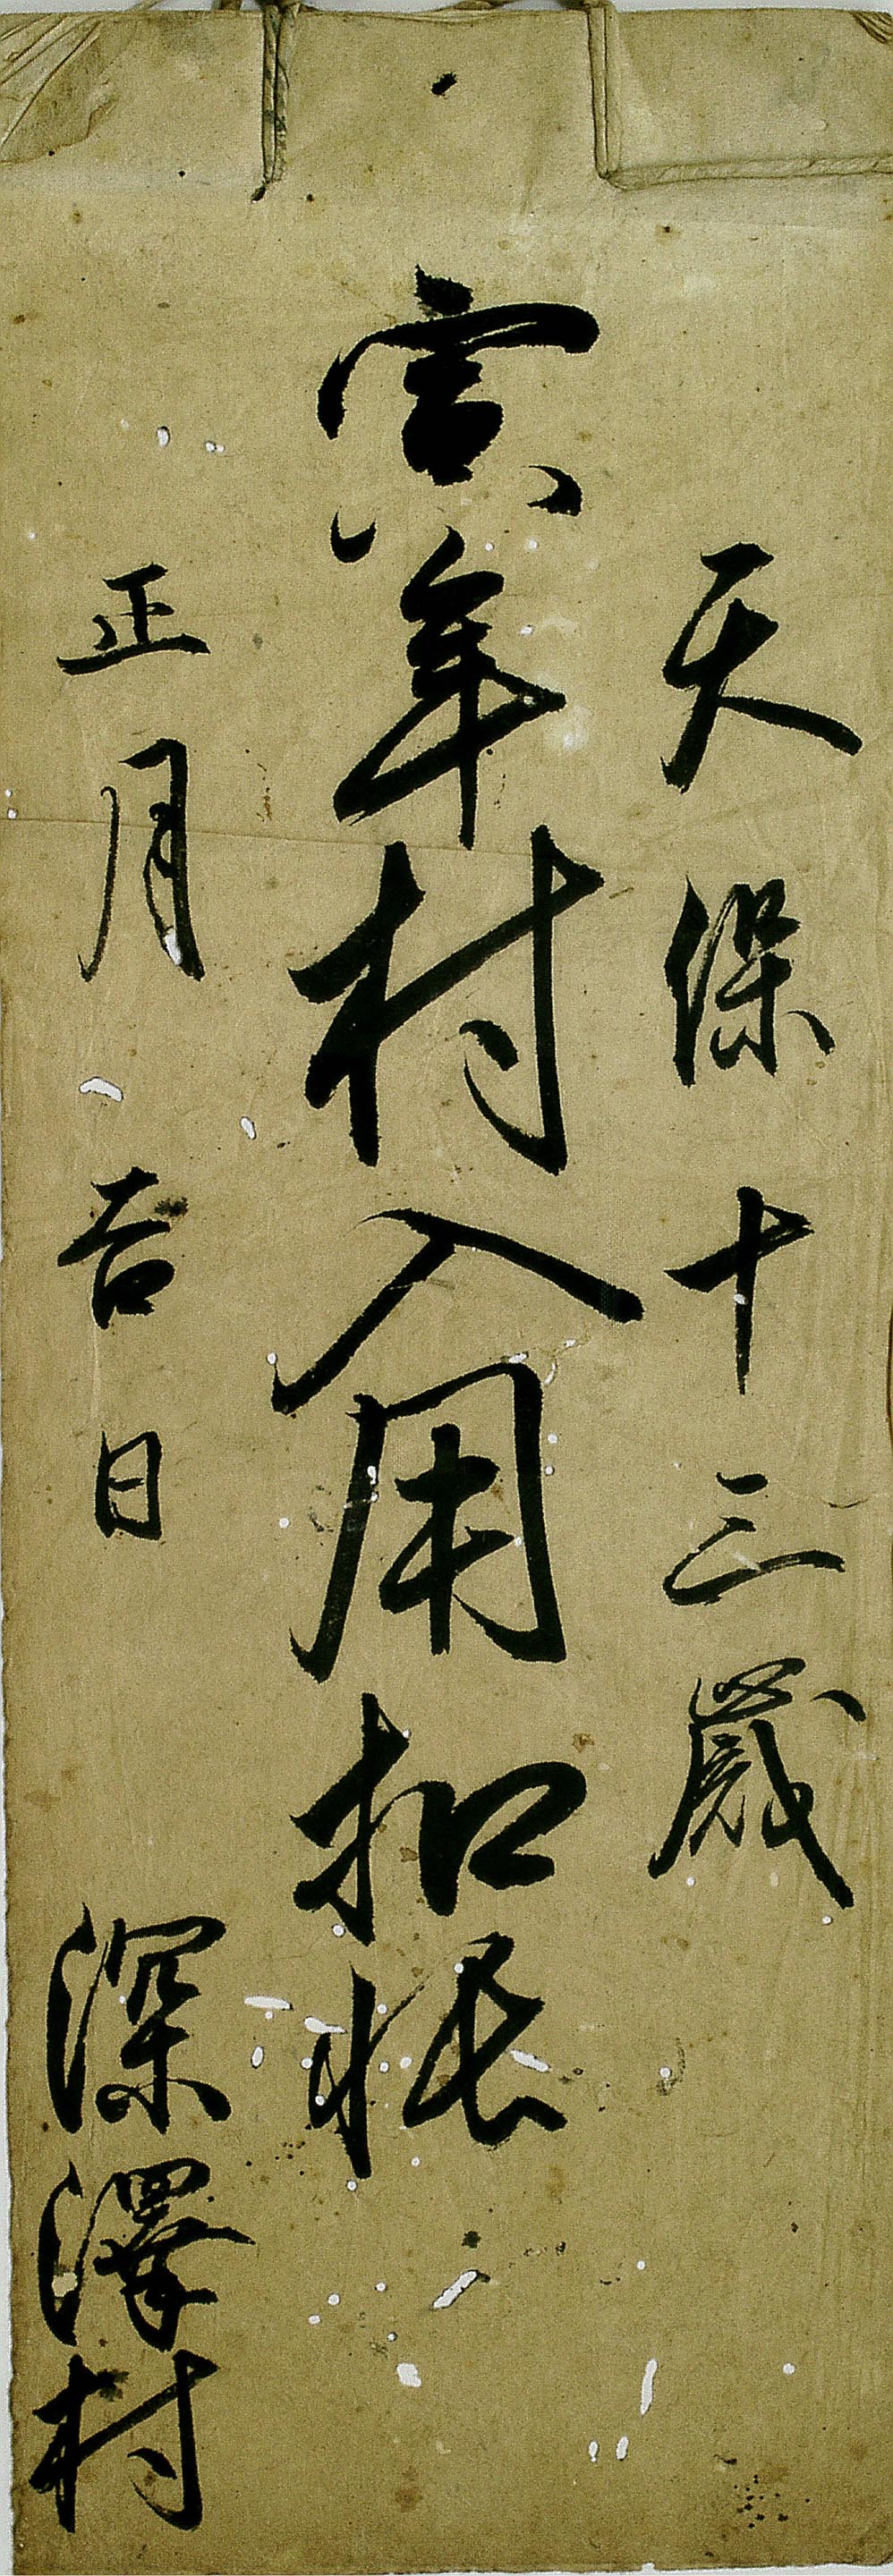 天保十三歳
寅年村入用扣帳
正月吉日 深澤村